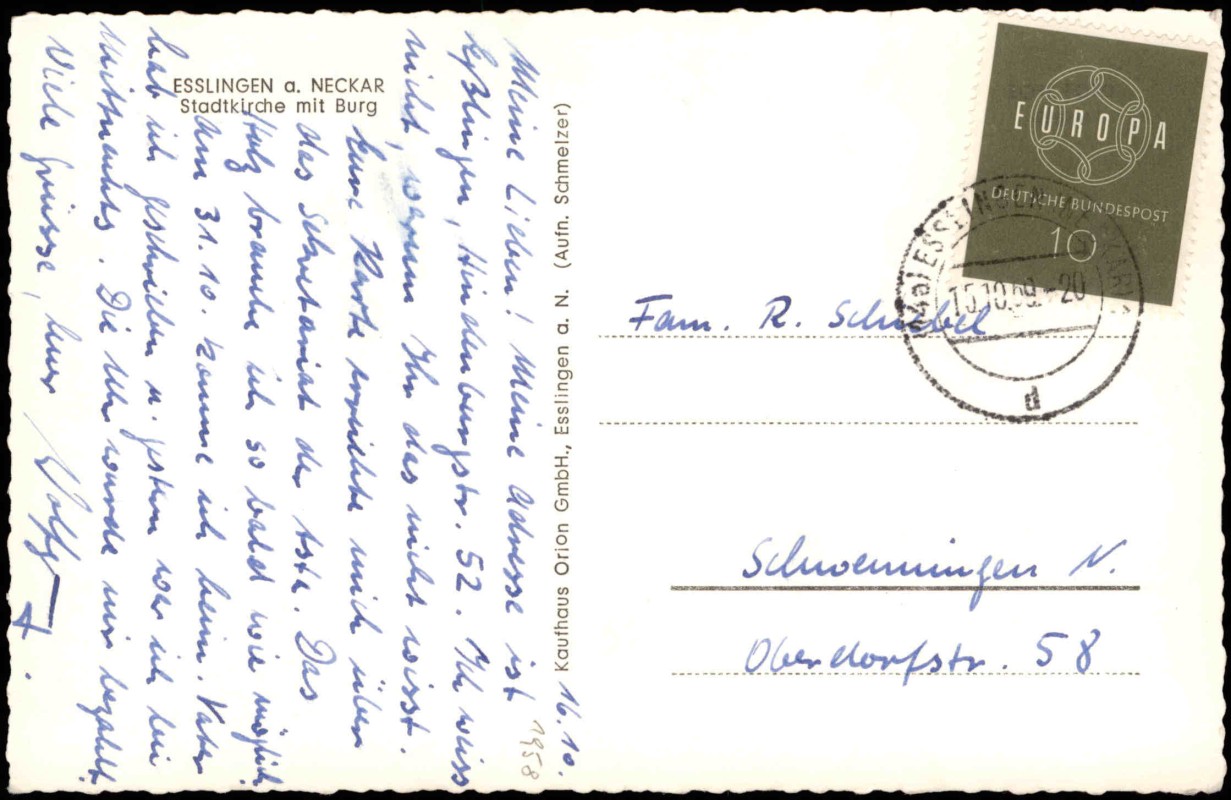 ESSLINGEN a. NECKAR
Stadtkirche mit Burg
16.10.
1958
Meine Lieben! Meine Adresse ist
Eßlingen, Hindenburgstr. 52. Ich weiss
nicht, warum Ihr das nicht wisst.
Eure Karte erreichte mich über
das Sekretariat der Asta. Das
Holz brauche ich so bald wie möglich
Am 31.10. komme ich heim. Vater
hab ich geschrieben u. gestern war ich bei
Mittnachts. Die Uhr wurde mir bezahlt.
Viele Grüsse, Euer
Wolfg
Kaufhaus Orion GmbH., Esslingen a. N. (Aufn. Schmelzer)
EUROPA
DEUTSCHE BUNDESPOST
10
ESSLINGEN (NECKAR) 1
15.10.59.-20
d
Fam. R. Schiebel
Schwenningen N.
Oberdorfstr. 58